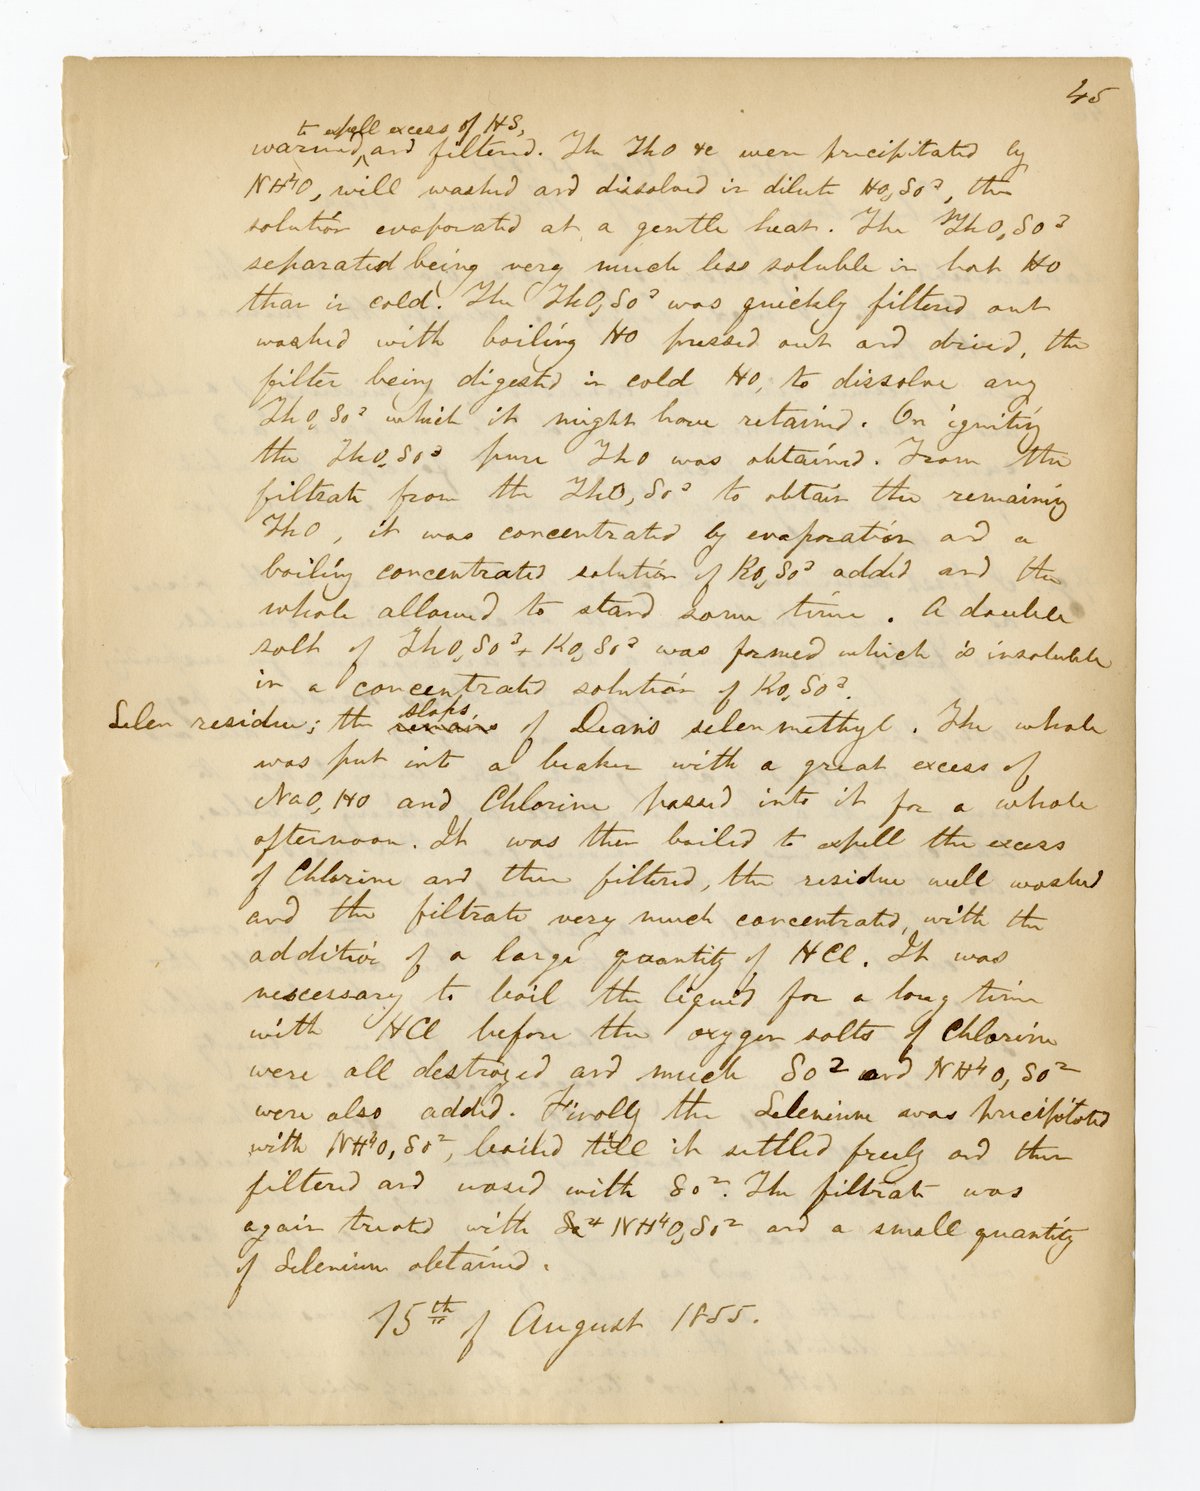 45
to expell excess of HS,
warmed, and filtered. The ThO &c were precipitated by
NH⁴O, will washed and dissolved in dilute HO,SO³, the
solution evaporated at a gentle heat. The ThO,SO³
separated being very much less soluble in hot HO
than in cold. The ThO,SO³ was quickly filtered out
washed with boiling HO pressed out and dried, the
filter being digested in cold HO, to dissolve any
ThO,SO³ which it might have retained. On igniting
the ThO,SO³ pure ThO was obtained. From the
filtrate from the ThO,SO³ to obtain the remaining
ThO, it was concentrated by evaporation and a
boiling concentrated solution of KO,SO³ added and the
whole allowed to stand some time. A double
salt of ThO,SO³ + KO,SO³ was formed which is insoluble
in a concentrated solution of KO,SO³.
slops
Selen residue; the remains of Dean's selenmethyl. The whole
was put into a beaker with a great excess of
NaO,HO and Chlorine passed into it for a whole
afternoon. It was then boiled to expell the excess
of Chlorine and then filtered, the residue well washed
and the filtrate very much concentrated, with the
addition of a large quantity of HCl. It was
nescessary to boil the liquid for a long time
with HCl before the oxygen salts of Chlorine
were all destroyed and much SO² and NH⁴O,SO²
were also added. Finally the Selenium was precipitated
with NH⁴O,SO², boiled till it settled freely and then
filtered and wased with SO². The filtrate was
again treated with NH⁴O,SO² and a small quantity
of Selenium obtained.
15th of August 1855.